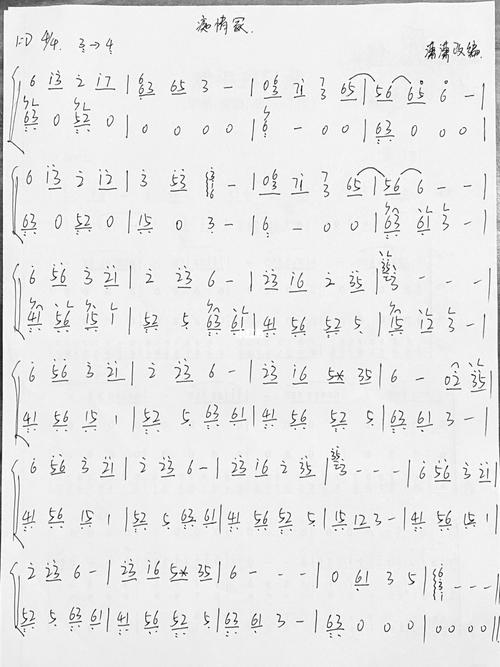 痴情冢.
1=D 4/4. 3→4
潇潇改编.
6 i3 2 i7 | 63 65 3 - | 063 71 73 65 | 56 65 6 - |
63 0 52 0 | 0 0 0 0 | 6 - 0 0 | 63 0 0 0 |
6 i3 2 i2 | 3 53 3 - | 063 71 73 65 | 56 6 - - |
63 0 52 0 | 15 0 3 - | 6 - 0 0 | 63 61 3 - |
6 56 3 21 | 2 23 6 - | 23 i6 2 35 | 3 - - - |
41 56 15 1 | 52 5 63 61 | 41 56 52 5 | 15 12 3 - |
6 56 3 21 | 2 23 6 - | 23 i6 5* 35 | 6 - 02 35 |
41 56 15 1 | 52 5 63 61 | 41 56 52 5 | 63 61 3 - |
6 56 3 21 | 2 23 6 - | 23 i6 2 35 | 3 - - - | 6 56 3 21 |
41 56 15 1 | 52 5 63 61 | 41 56 52 5 | 15 12 3 - | 41 56 15 1 |
2 23 6 - | 23 i6 5* 35 | 6 - - - | 0 61 3 5 | 6 - - - ||
52 5 63 61 | 41 56 52 5 | 63 61 3 - | 63 0 0 0 | 0 0 0 0 ||